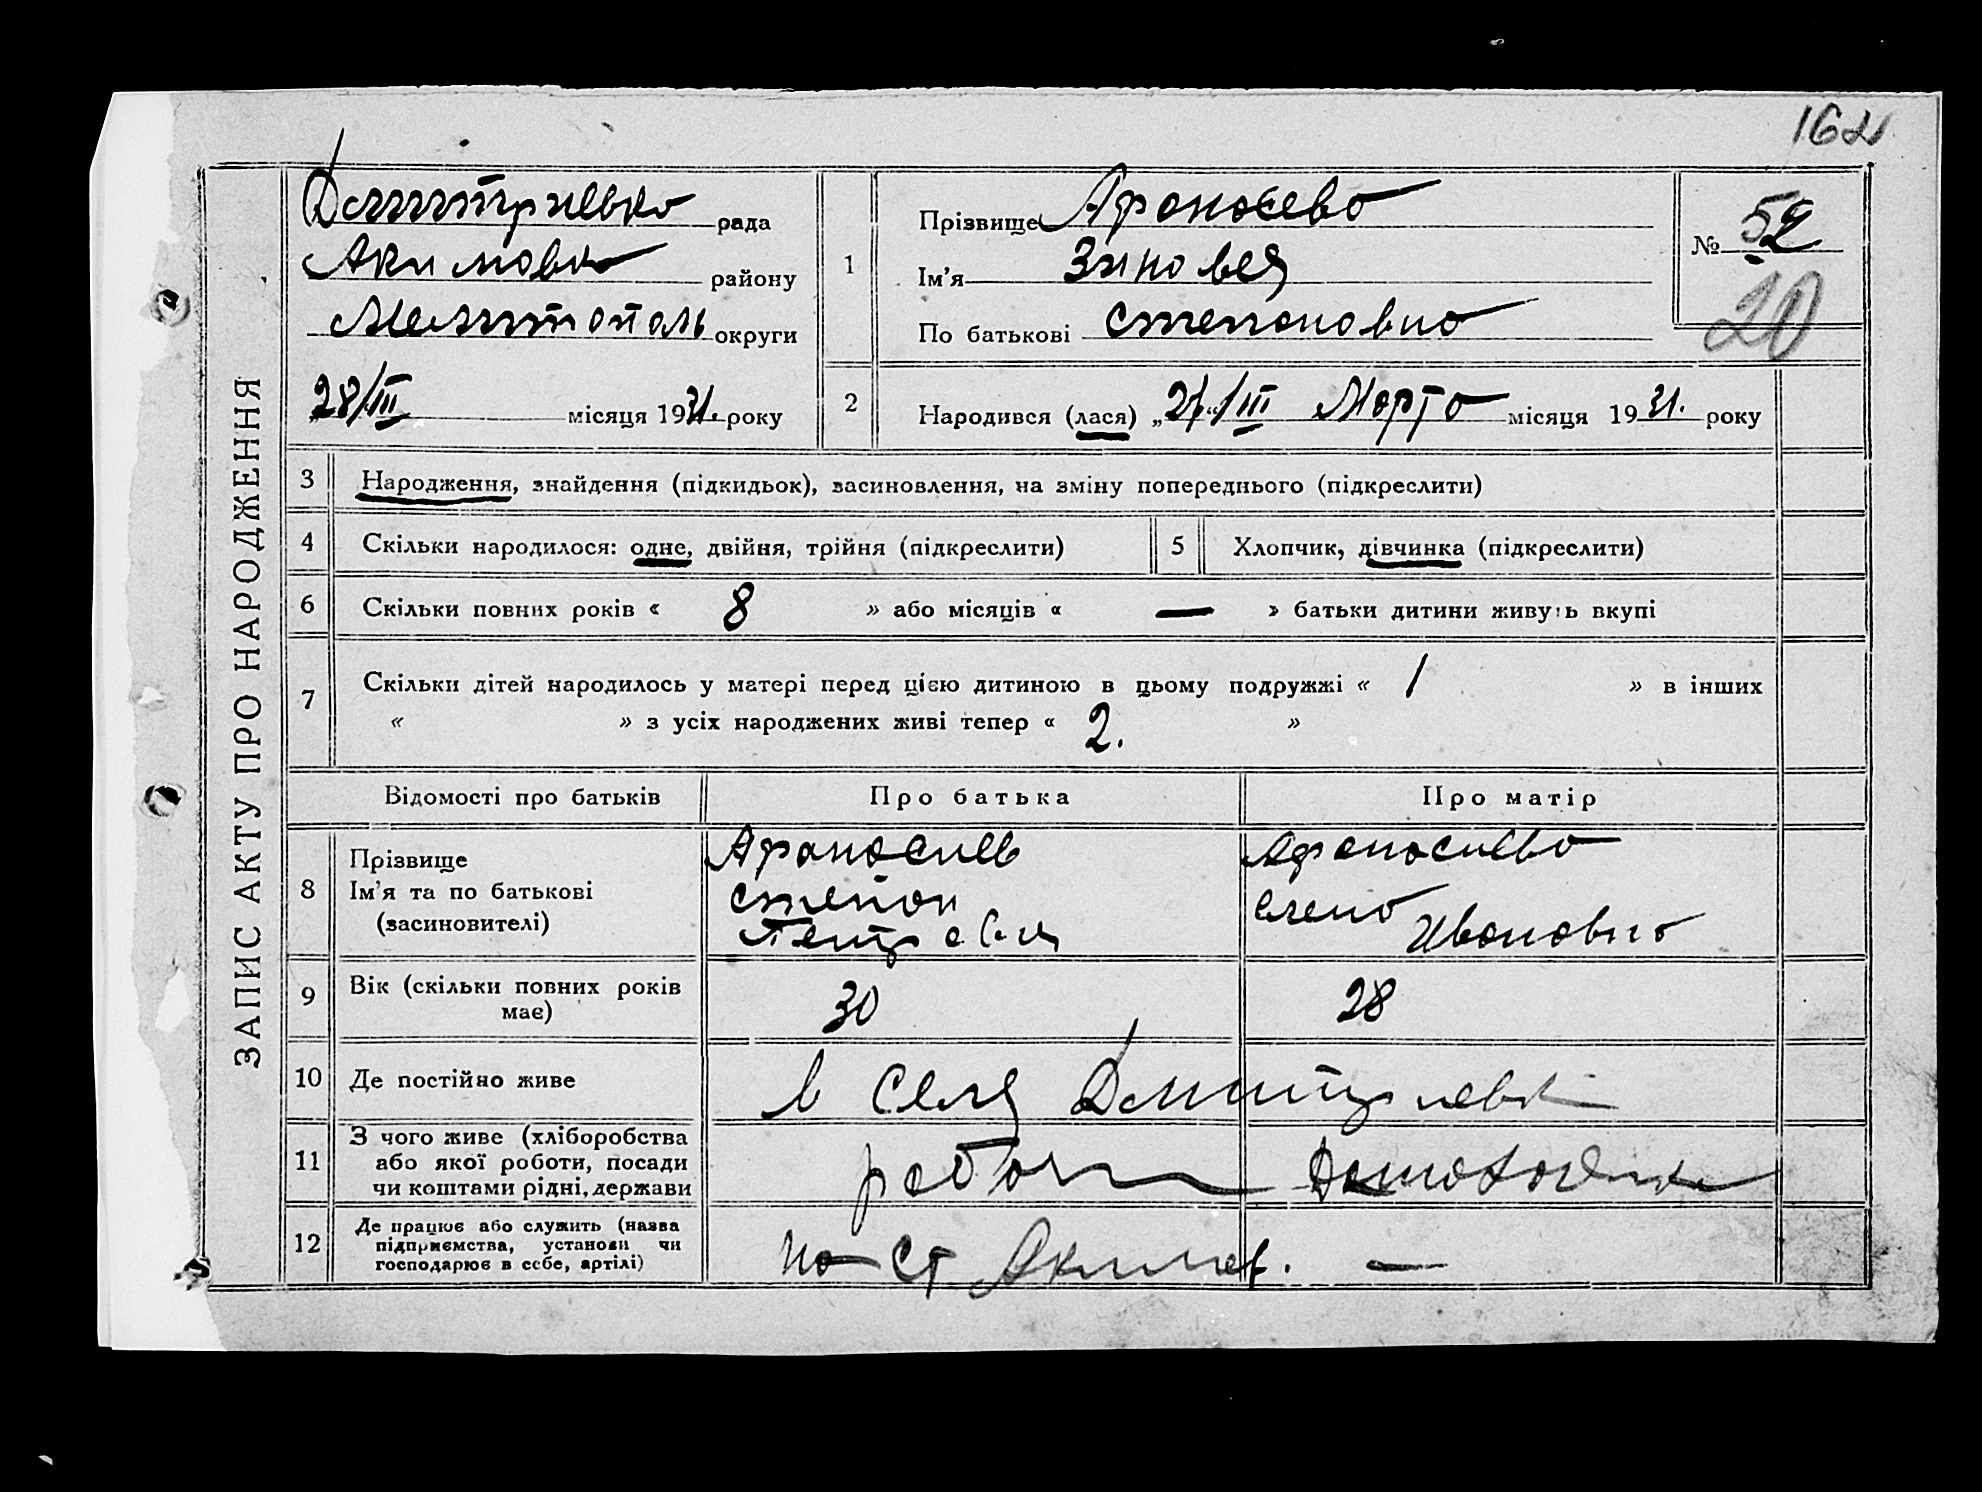 162
ЗАПИС АКТУ ПРО НАРОДЖЕННЯ
Дмитриевка рада
Акимовка району
Мелитополь округи
28/III місяця 1931. року
1
Прізвище Афонасева
Ім'я Зиновея
По батькові Степановна
№ 52
20
2 Народився (лася) „27“/III Марта місяця 1931. року
3 Народження, знайдення (підкидьок), засиновлення, на зміну попереднього (підкреслити)
4 Скільки народилося: одне, двійня, трійня (підкреслити) 5 Хлопчик, дівчинка (підкреслити)
6 Скільки повних років « 8 » або місяців « — » батьки дитини живуть вкупі
7 Скільки дітей народилось у матері перед цією дитиною в цьому подружжі « 1 » в інших
« » з усіх народжених живі тепер « 2. »
Відомості про батьків Про батька Про матір
8 Прізвище
Ім'я та по батькові
(засиновителі)
Афонасиев
Степан
Петров
Афонасиева
Елена
Ивановна
9 Вік (скільки повних років
має)
30 28
10 Де постійно живе в селя Дмитриевк
11 З чого живе (хліборобства
або якої роботи, посади
чи коштами рідні, держави
работ Домохозяйка
12 Де працює або служить (назва
підприємства, установи чи
господарює в себе, артілі)
на ст. Акимов. —